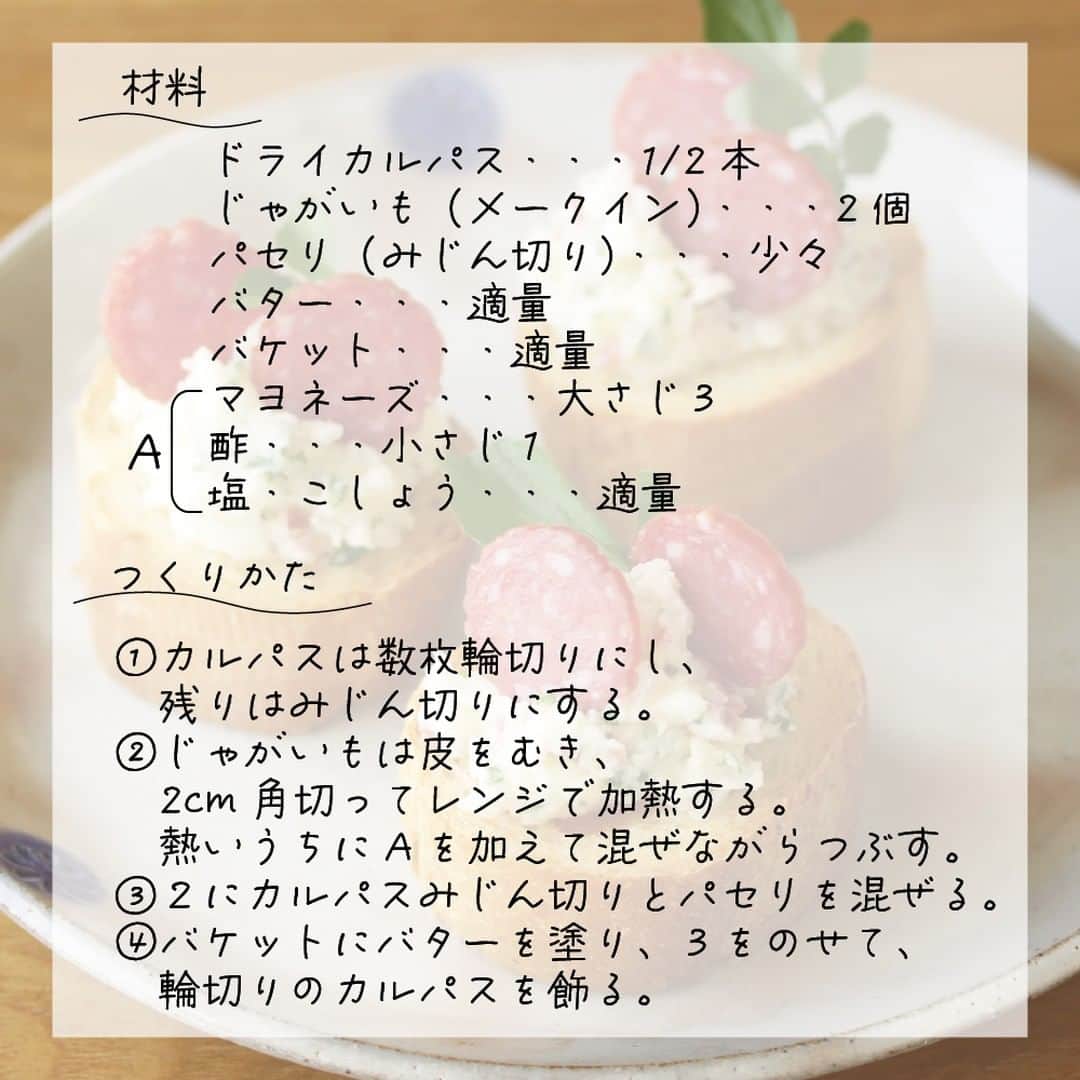 材料
ドライカルパス・・・1/2本
じゃがいも（メークイン）・・・2個
パセリ（みじん切り）・・・少々
バター・・・適量
バケット・・・適量
A
マヨネーズ・・・大さじ3
酢・・・小さじ1
塩・こしょう・・・適量
つくりかた
①カルパスは数枚輪切りにし、
残りはみじん切りにする。
②じゃがいもは皮をむき、
2cm角切ってレンジで加熱する。
熱いうちにAを加えて混ぜながらつぶす。
③2にカルパスみじん切りとパセリを混ぜる。
④バケットにバターを塗り、3をのせて、
輪切りのカルパスを飾る。